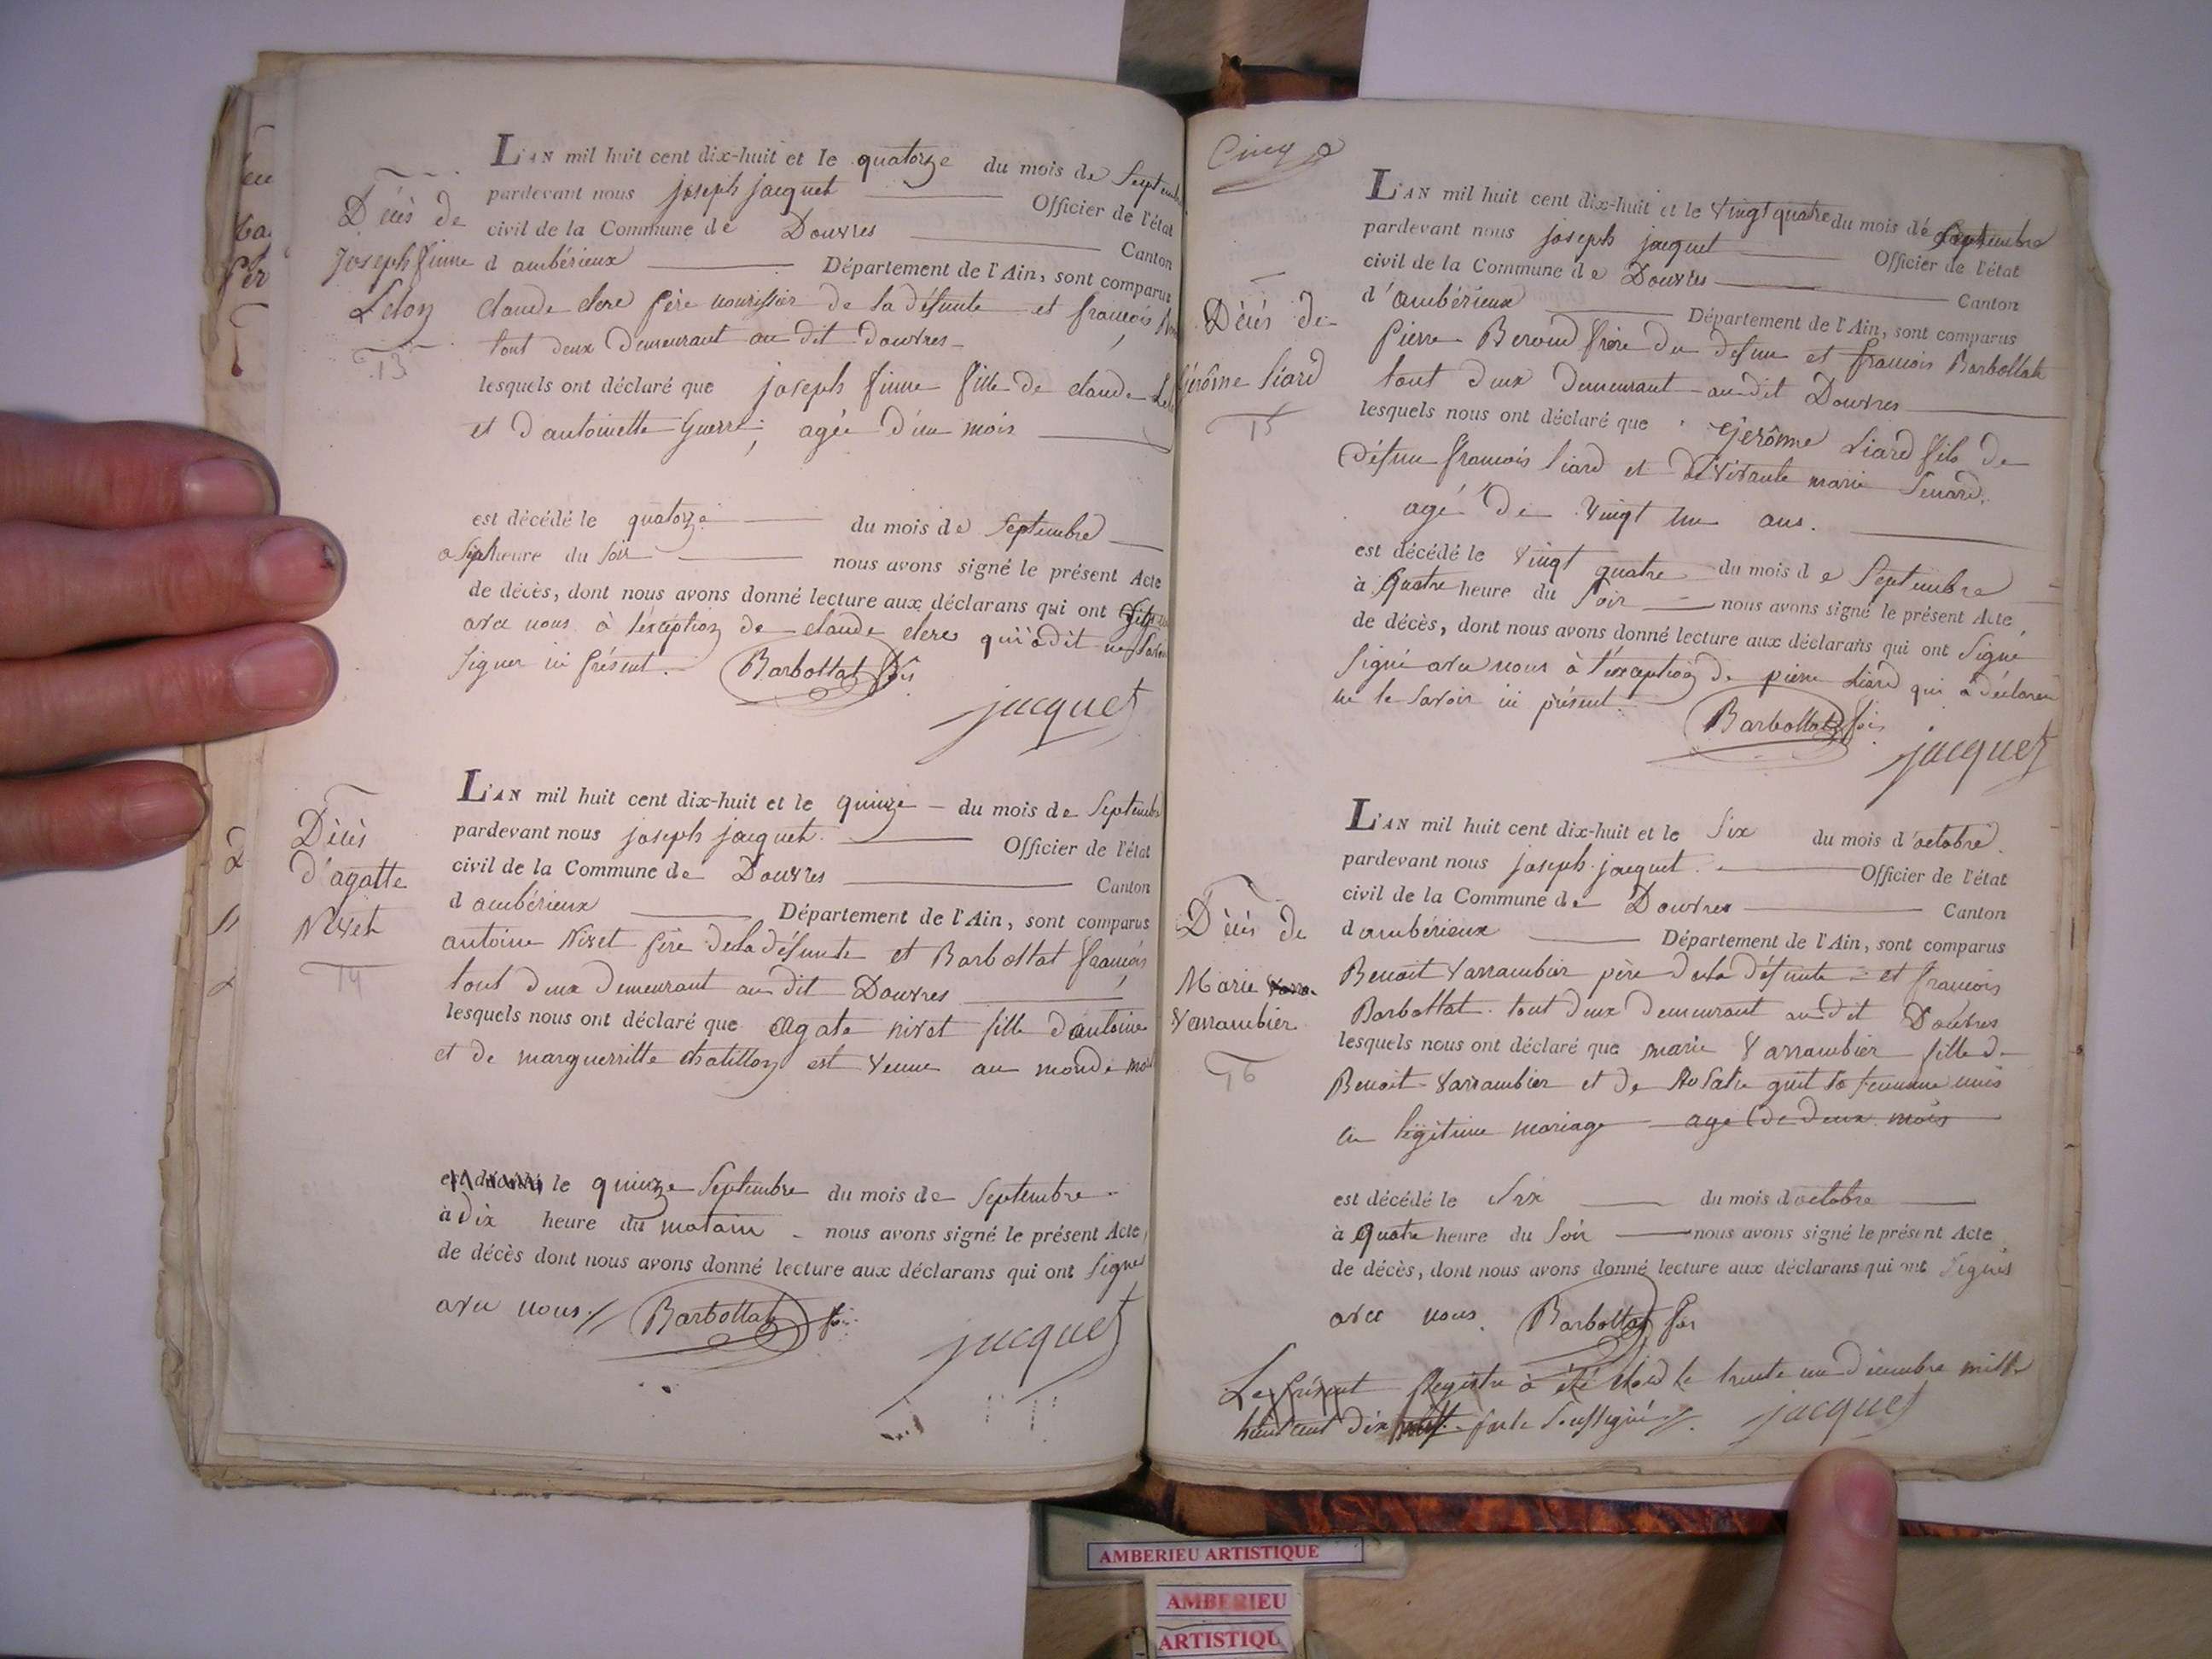 Décès de
Joseph finne
Leloz
13
L'AN mil huit cent dix-huit et le quatorze du mois de Septembre
pardevant nous joseph jacquet Officier de l'état
civil de la Commune de Douvres Canton
d ambérieux Département de l'Ain, sont comparus
claude clerc père nourissier de la défunte et francois
tout deux demeurant au dit douvres
lesquels ont déclaré que joseph finne fille de claude
et d antoinette Guerre, agée d'un mois
est décédé le quatorze du mois de Septembre
a Sept heure du Soir nous avons signé le présent Acte
de décès, dont nous avons donné lecture aux déclarans qui ont
avec nous à l'exception de claude clerc qui a dit ne Savoir
Signer ici présent. Barbollat
jacquet
Décès
d'agatte
Nivet
14
L'AN mil huit cent dix-huit et le quinze du mois de Septembre
pardevant nous joseph jacquet Officier de l'état
civil de la Commune de Douvres Canton
d ambérieux Département de l'Ain, sont comparus
antoine Nivet père dela défunte et Barbollat francois
tout deux demeurant au dit Douvres
lesquels nous ont déclaré que agate nivet fille d antoine
et de marguerritte chatilloz est venue au monde
est décédé le quinze Septembre du mois de Septembre
à dix heure du matain nous avons signé le présent Acte
de décès dont nous avons donné lecture aux déclarans qui ont Signé
avec nous Barbollat
jacquet
Cinq
Décès de
Gérôme Liard
15
L'AN mil huit cent dix-huit et le vingt quatre du mois de Septembre
pardevant nous joseph jacquet Officier de l'état
civil de la Commune de Douvres Canton
d'ambérieux Département de l'Ain, sont comparus
Pierre Beroud frère du defun et francois Barbollat
tout deux demeurant audit Douvres
lesquels nous ont déclaré que Gerôme Liard fils de
défun francois liard et de vivante marie
agé de vingt un ans.
est décédé le vingt quatre du mois de Septembre
à quatre heure du Soir nous avons signé le présent Acte
de décès, dont nous avons donné lecture aux déclarans qui ont Signé
Signé avec nous à l'exception de pierre Liard qui a déclaré
ne le Savoir ici présent. Barbollat
jacquet
Décès de
Marie
Varrambier
16
L'AN mil huit cent dix-huit et le Six du mois d'octobre
pardevant nous joseph jacquet Officier de l'état
civil de la Commune de Douvres Canton
d ambérieux Département de l'Ain, sont comparus
Benoit Varrambier père dela défunte et francois
Barbollat tout deux demeurant audit Douvres
lesquels nous ont déclaré que marie Varrambier fille de
Benoit Varrambier et de femme unis
en légitime mariage age de deux mois
est décédé le Six du mois d octobre
à quatre heure du Soir nous avons signé le présent Acte
de décès, dont nous avons donné lecture aux déclarans qui ont Signés
avec nous. Barbollat
Le présent Registre à été clos le trente un décembre mille
huit cent dix par le Soussigné jacquet
AMBERIEU ARTISTIQUE
AMBERIEU
ARTISTIQU